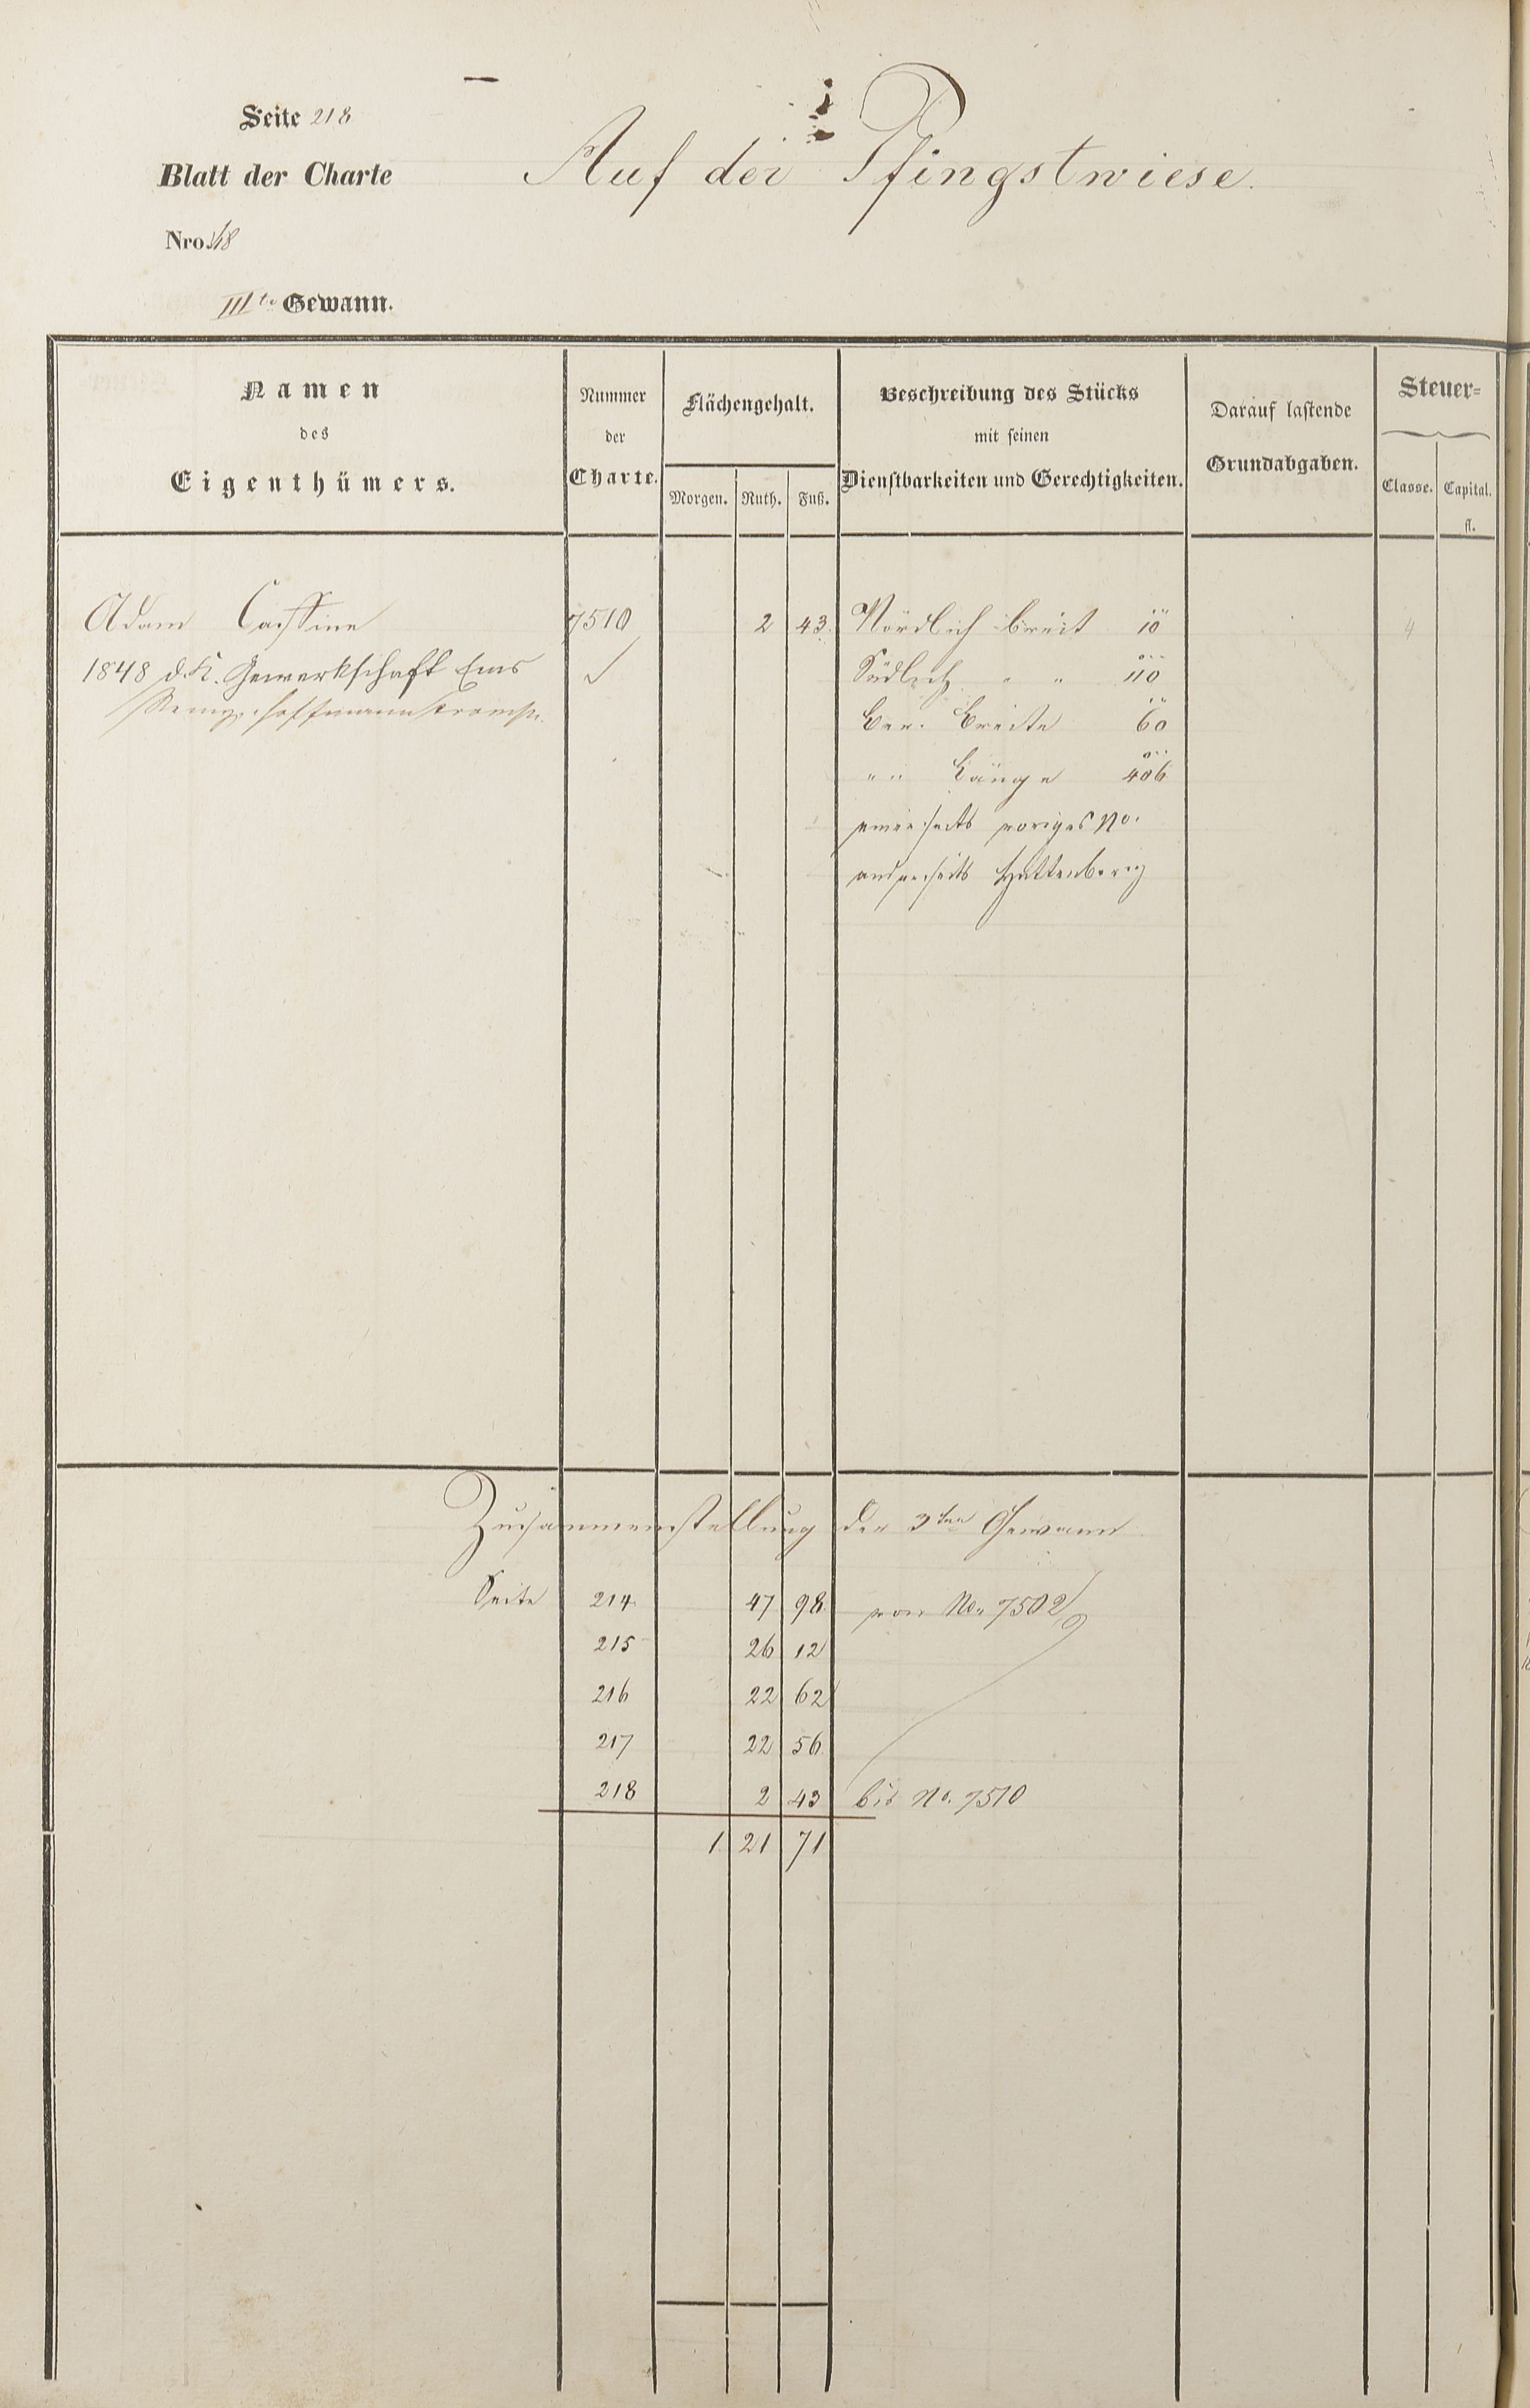 Seite 218
Blatt der Charte
Auf der Pfingstwiese.
Nro. 18
IIIte Gewann.
Namen des Eigenthümers.
Nummer der Charte.
Flächengehalt.
Morgen. Ruth. Fuß.
Beschreibung des Stücks mit seinen Dienstbarkeiten und Gerechtigkeiten.
Darauf lastende Grundabgaben.
Steuer-
Classe. Capital. fl.
Adam Cassine 7510 2 43 Nördlich breit 10 4
1848 d. K. Gewerkschaft Ems Südlich " " 110
Ber. Breite 60
" " Länge 406
einerseits voriges No.
anderseits Huttenberg
Zusammenstellung der 3ten Gewann
Seite 214 47 98 von No. 7502
215 26 12
216 22 62
217 22 56
218 2 43 bis No. 7510
1 21 71